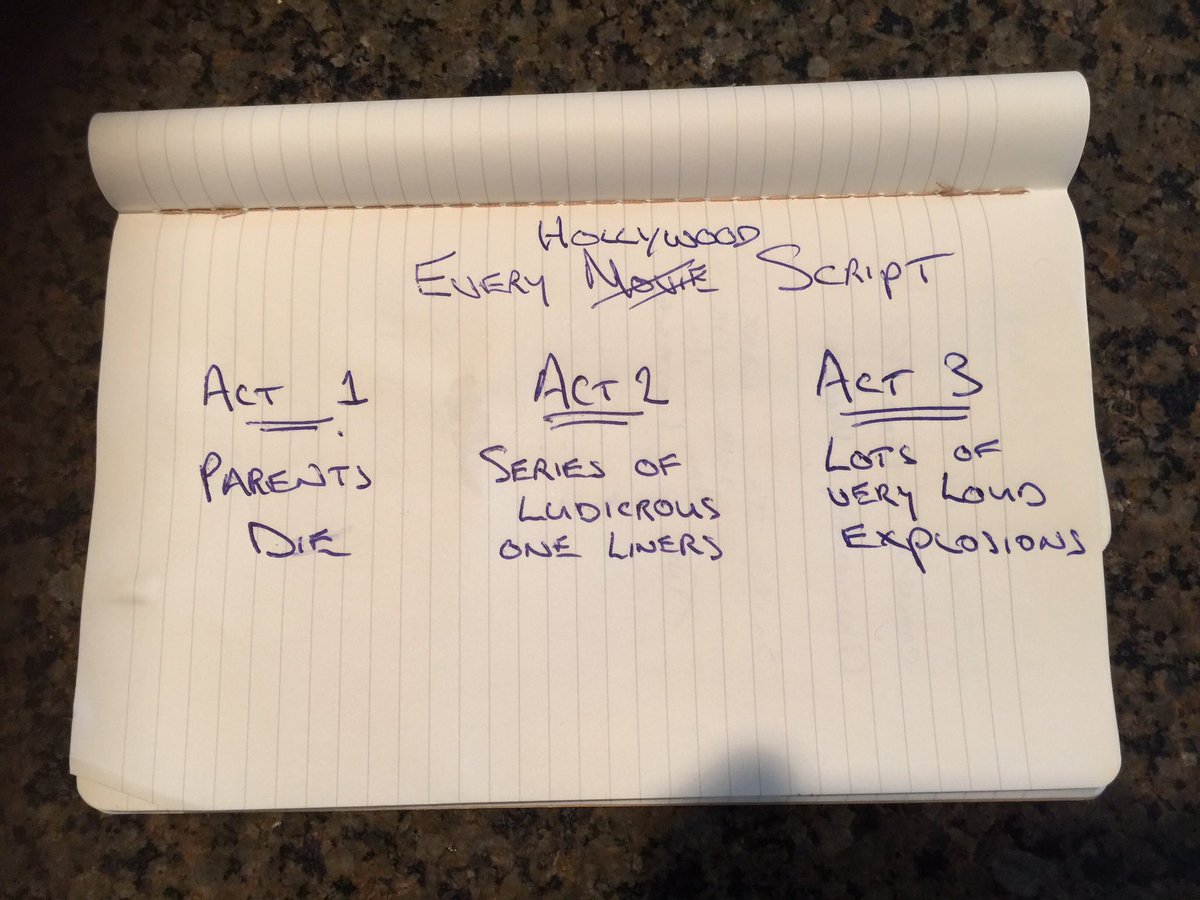 HOLLYWOOD
EVERY MOVIE SCRIPT
ACT 1
PARENTS
DIE
ACT 2
SERIES OF
LUDICROUS
ONE LINERS
ACT 3
LOTS OF
VERY LOUD
EXPLOSIONS